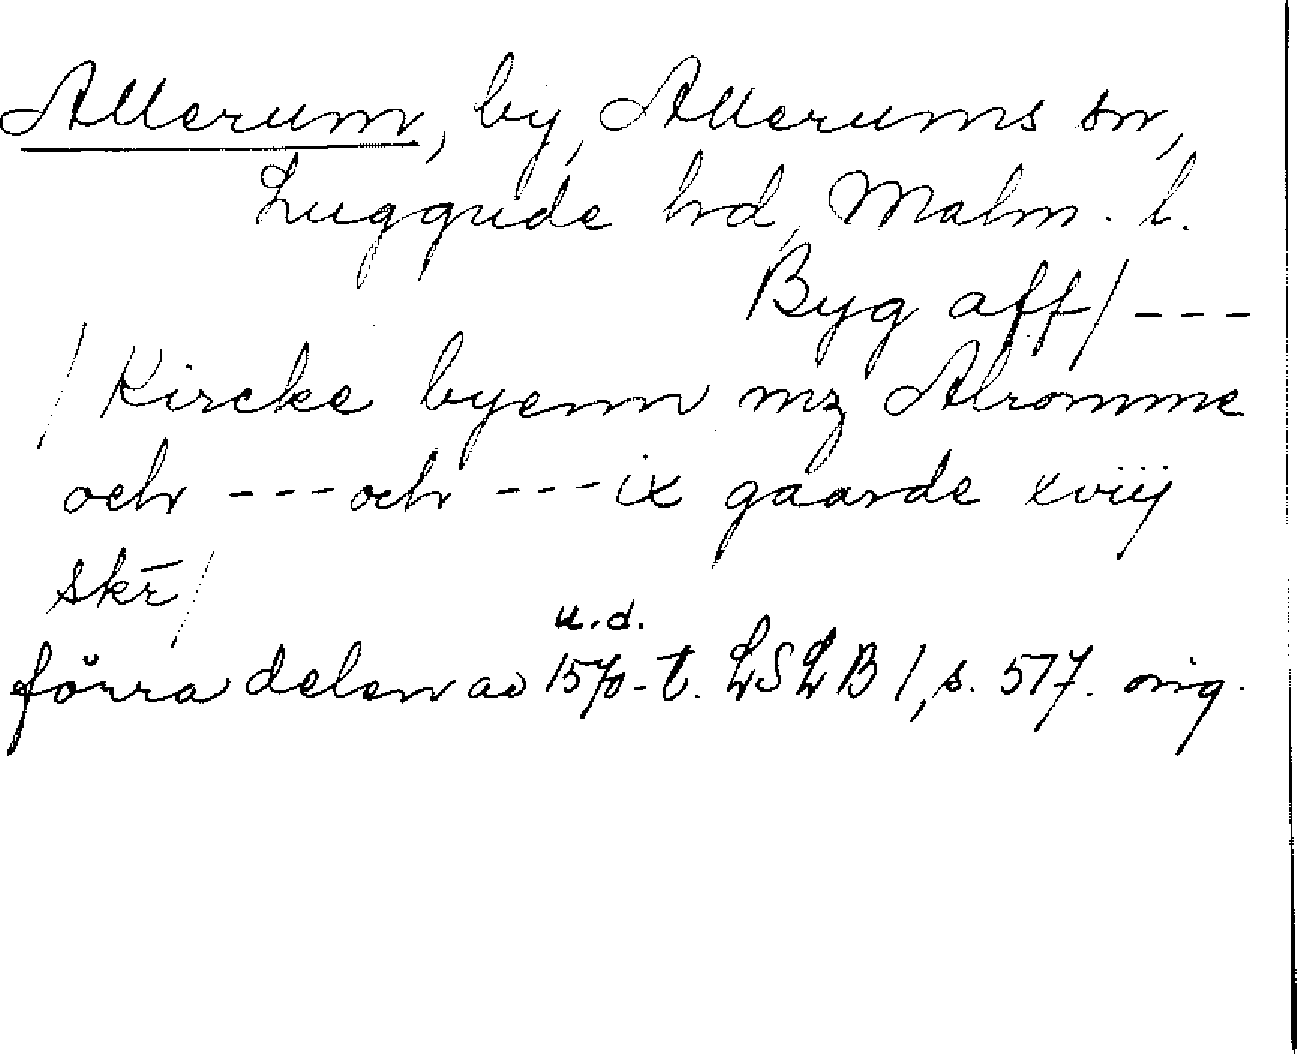 Allerum, by, Allerums sn,
Luggude hd, Malm. l.
Byg aff/ ---
/ Kircke byenn mz Alromme
och --- och --- ix gaarde xviij
skr̄ /
u.d.
förra delen av 1570-t. LSLB 1, s. 577. orig.